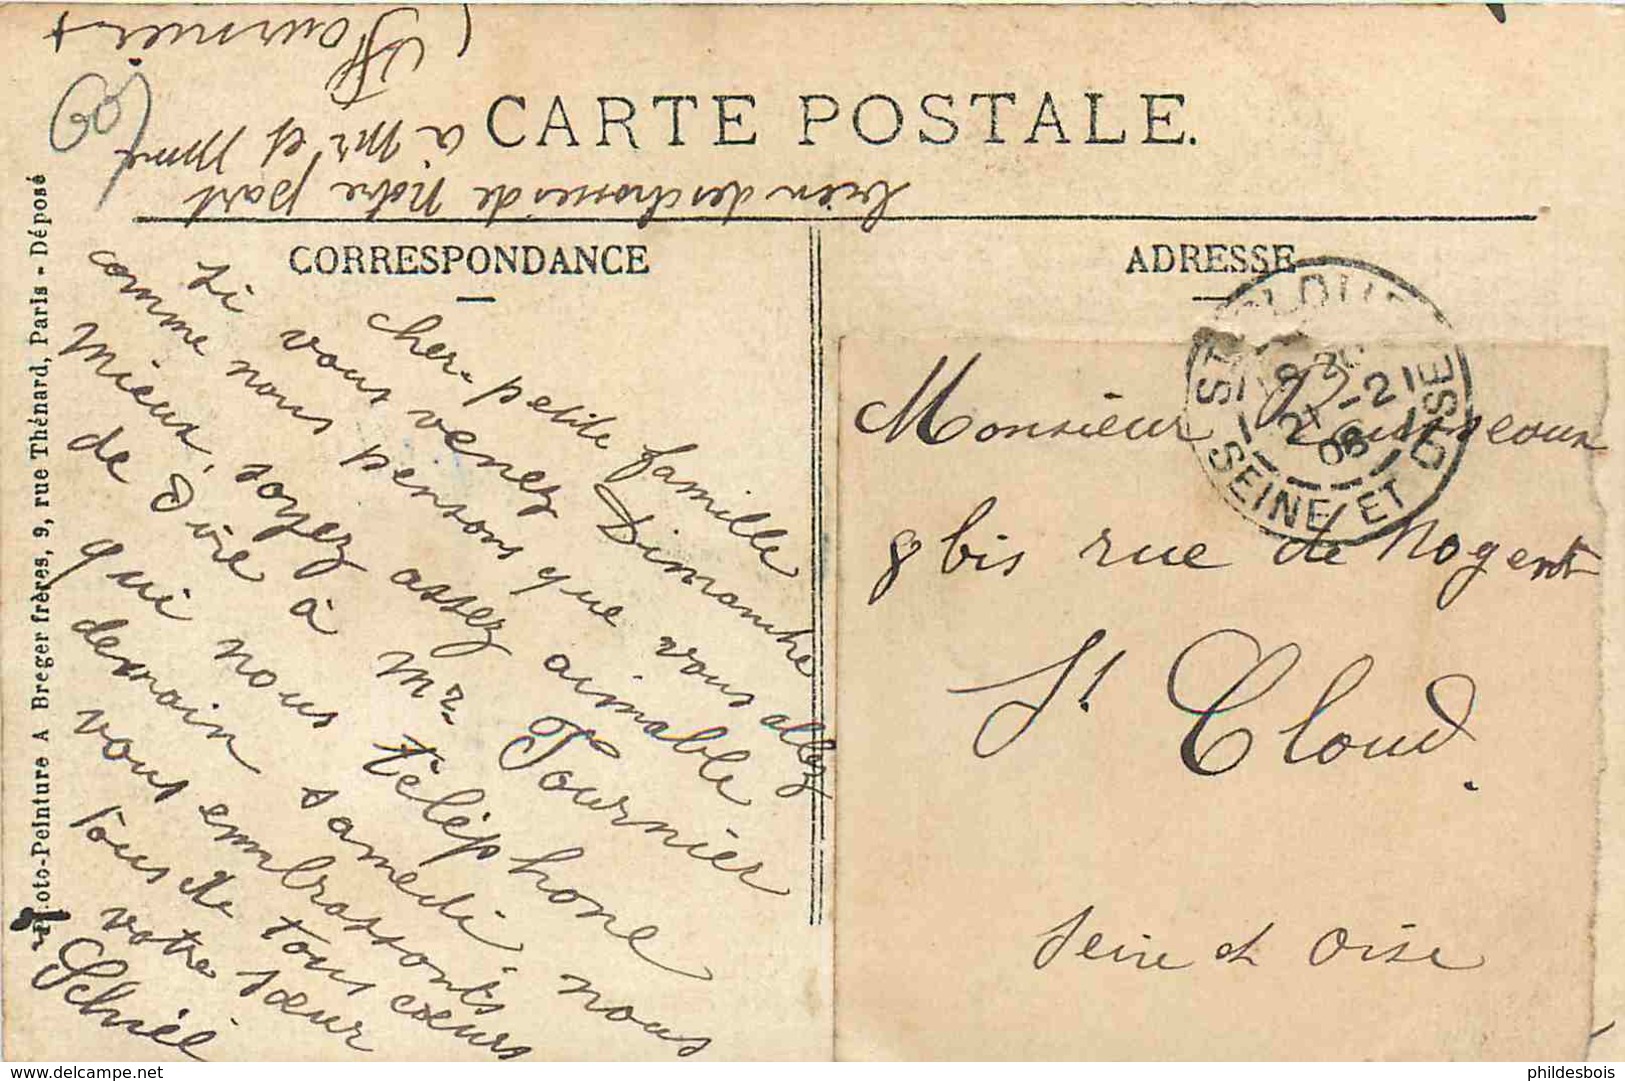 CARTE POSTALE.
CORRESPONDANCE
ADRESSE
cher petite famille
si vous venez Dimanche
comme nous pensons que vous allez
mieux, soyez assez aimable
de dire à Mr. Fournier
qui nous téléphone
demain samedi, nous
vous embrassons
tous de tous cœurs
votre sœur
bien des choses de notre part
à Mr et Mme
Fournier
Monsieur
8 bis rue de Nogent
St Cloud.
Seine et Oise
ST CLOUD
21 -2
08
SEINE ET OISE
Photo-Peinture A Breger frères, 9, rue Thénard, Paris - Déposé
phildesbois